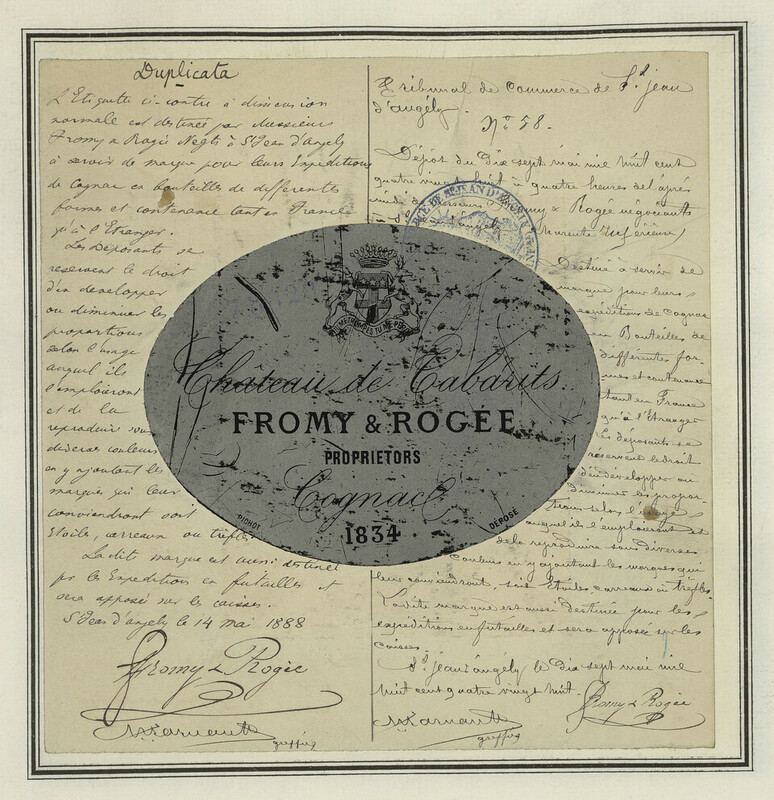 Duplicata
L'Etiquette ci-contre à dimension
normale est destinée par Messieurs
Fromy & Rogée Negts à St Jean d'Angely
à servir de marque pour leurs Expéditions
de Cognac en bouteilles de differentes
formes et contenance tant en France
qu'à l'Etranger.
Les Déposants se
reservent le droit
d'en developper
ou diminuer les
proportions
selon l'usage
auquel ils
l'emploieront
et de la
reproduire sous
diverses couleurs
en y ajoutant les
marques qui leur
conviendront soit
Etoile, carreaux ou trèfles
La dite marque est aussi destinée
pr les Expéditions en futailles et
sera apposé sur les caisses.
St Jean d'angely le 14 Mai 1888
Fromy & Rogée
greffier
Tribunal de Commerce de St Jean
d'angély.
No 58.
Dépôt du dix sept mai mil huit cent
quatre vingt huit à quatre heures de l'après
midi Messieurs Fromy & Rogée négociants
à St d'angely Charente Inférieure
Destiné à servir de
marque pour leurs
expéditions de Cognac
en Bouteilles de
differentes for-
mes et contenance
tant en France
qu'à l'Etranger
Les déposants se
réservent le droit
d'en développer ou
diminuer les propor-
tions selon l'usage
auquel ils l'emploieront et
de la reproduire sous diverses
couleurs en y ajoutant les marques qui
leur conviendront, soit Etoiles carreaux ou trèfles.
Ladite marque est aussi destinée pour les
expéditions en futailles et sera apposée sur les
caisses.
St jean d'angély le dix sept mai mil
huit cent quatre vingt huit.
Fromy & Rogée
greffier
Château de Cabarits
FROMY & ROGÉE
PROPRIETORS
Cognac
1834
PICHOT
DÉPOSÉ